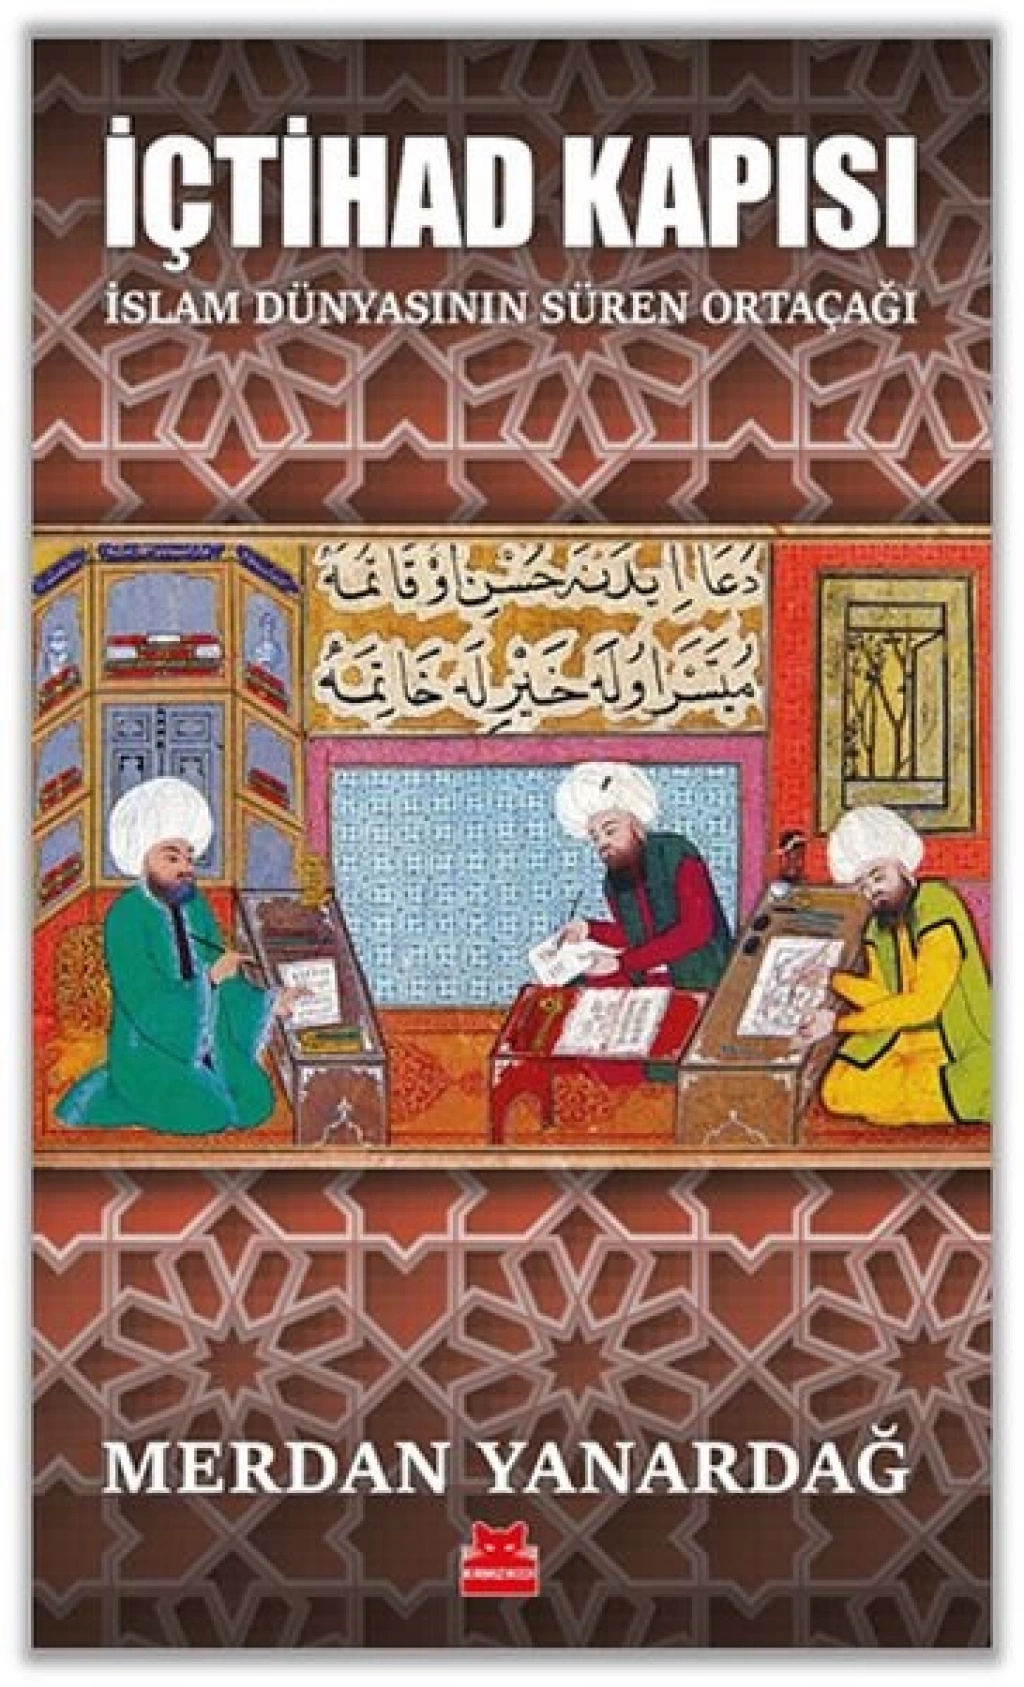 İÇTİHAD KAPISI
İSLAM DÜNYASININ SÜREN ORTAÇAĞI
دعا ایدنه حسن اوقاتمه
میسر اوله خیر له خاتمه
MERDAN YANARDAĞ
KIRMIZI KEDİ